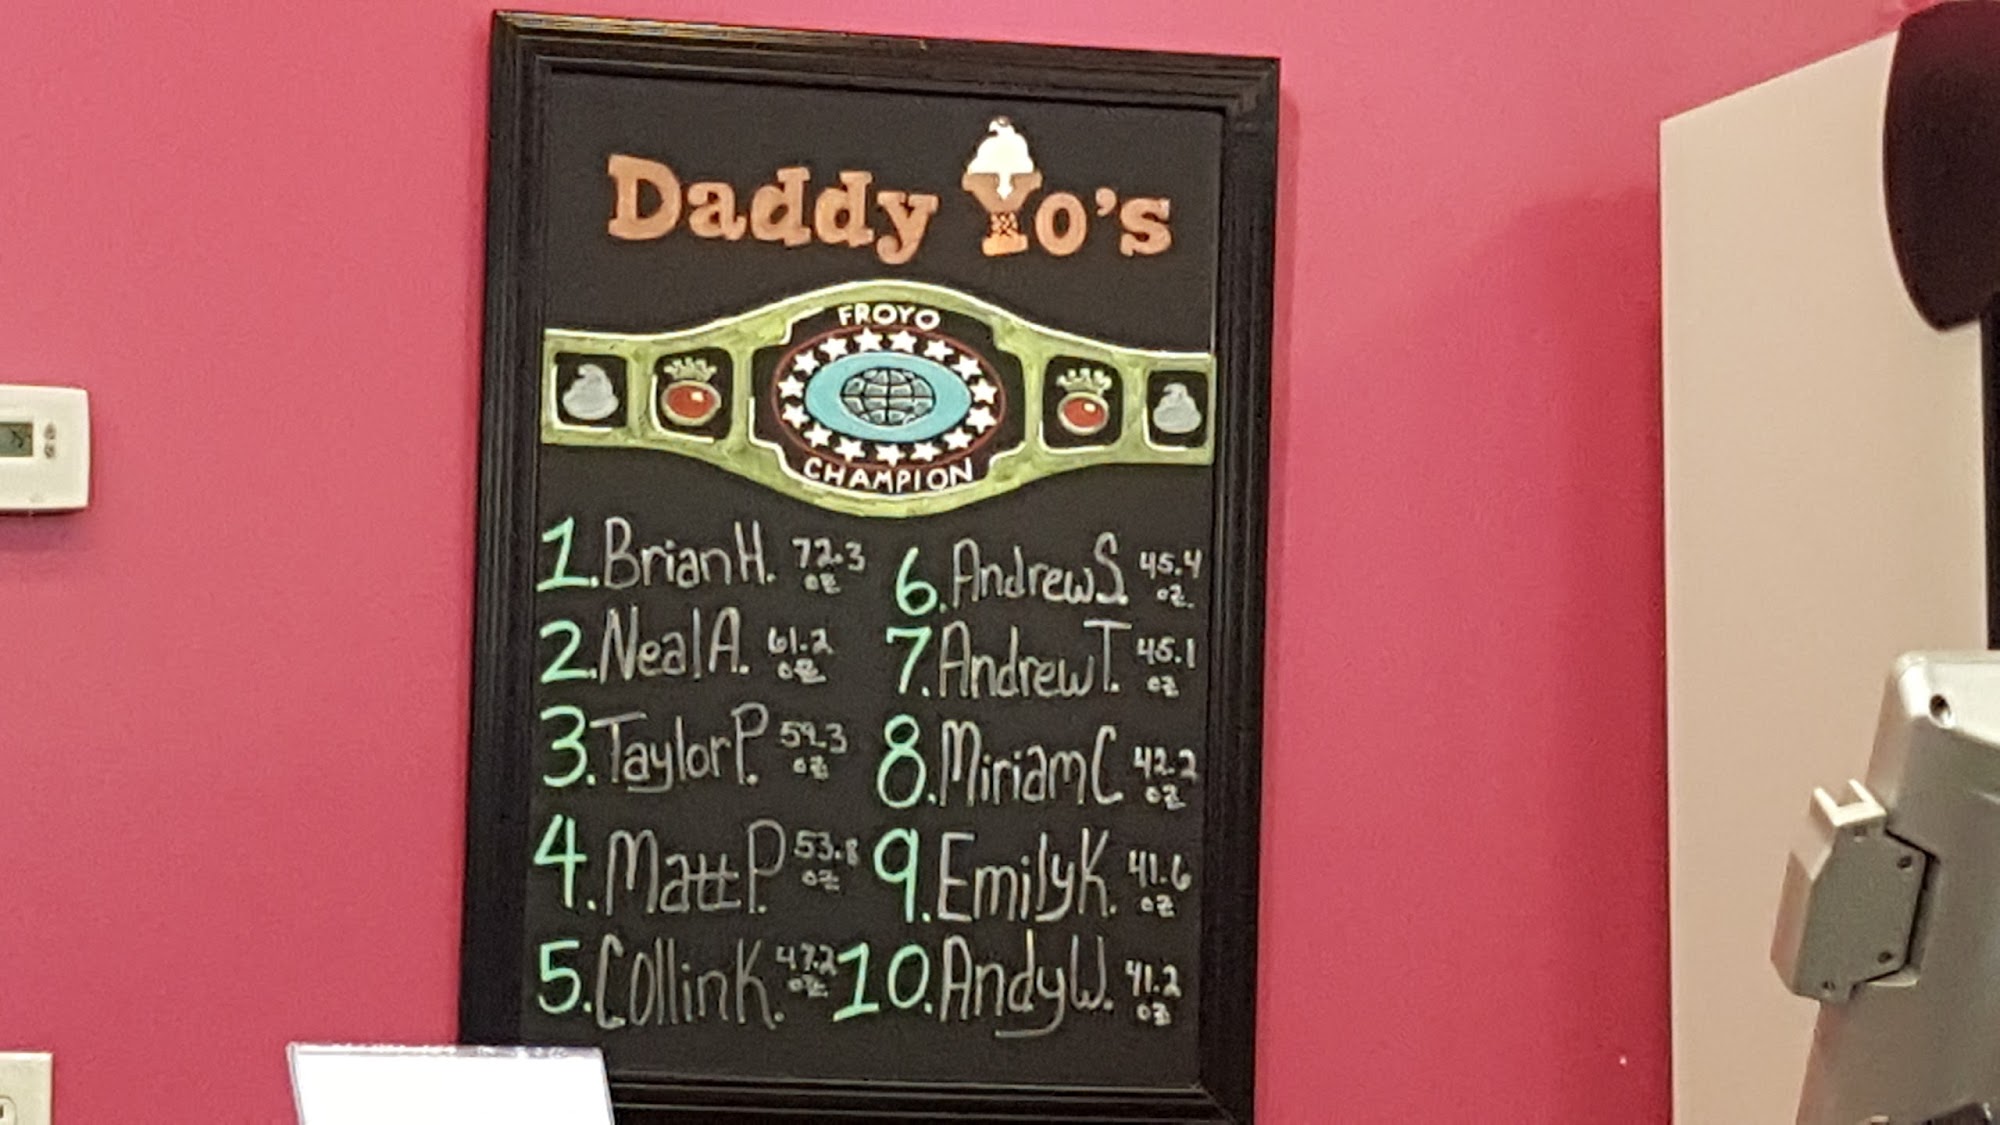 Daddy Yo's
FROYO
CHAMPION
1. Brian H. 72.3 oz
2. Neal A. 61.2 oz
3. Taylor P. 59.3 oz
4. Matt P. 53.8 oz
5. Collin K. 47.2 oz
6. Andrew S. 45.4 oz.
7. Andrew T. 45.1 oz
8. Miriam C 42.2 oz
9. Emily K. 41.6 oz
10. Andy W. 41.2 oz